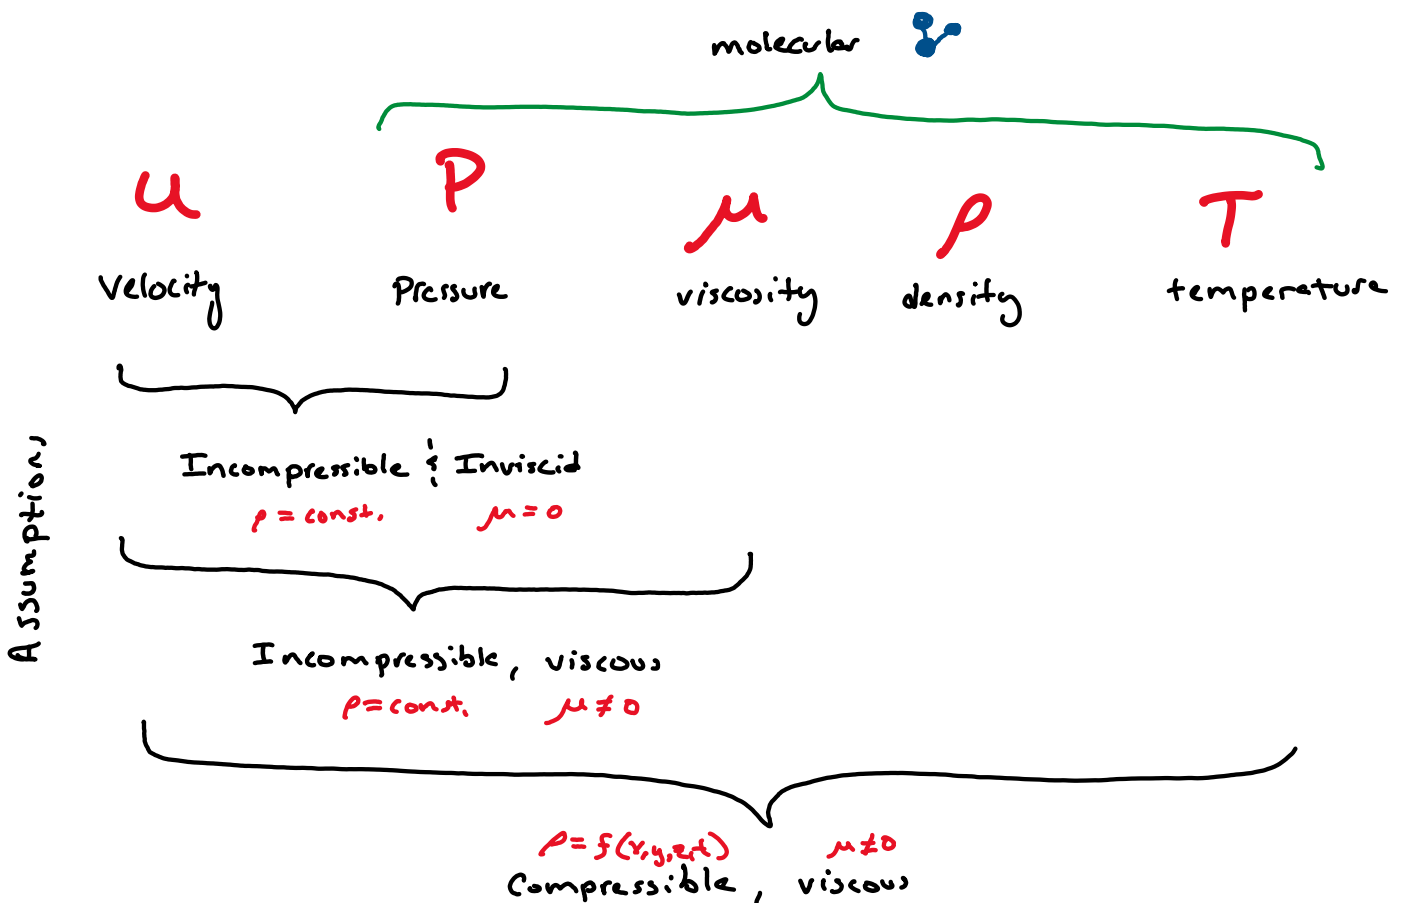 molecular
u P μ ρ T
Velocity Pressure viscosity density temperature
Assumptions
Incompressible & Inviscid
ρ = const. μ = 0
Incompressible, viscous
ρ = const. μ ≠ 0
ρ = f(x,y,z,t) μ ≠ 0
Compressible, viscous